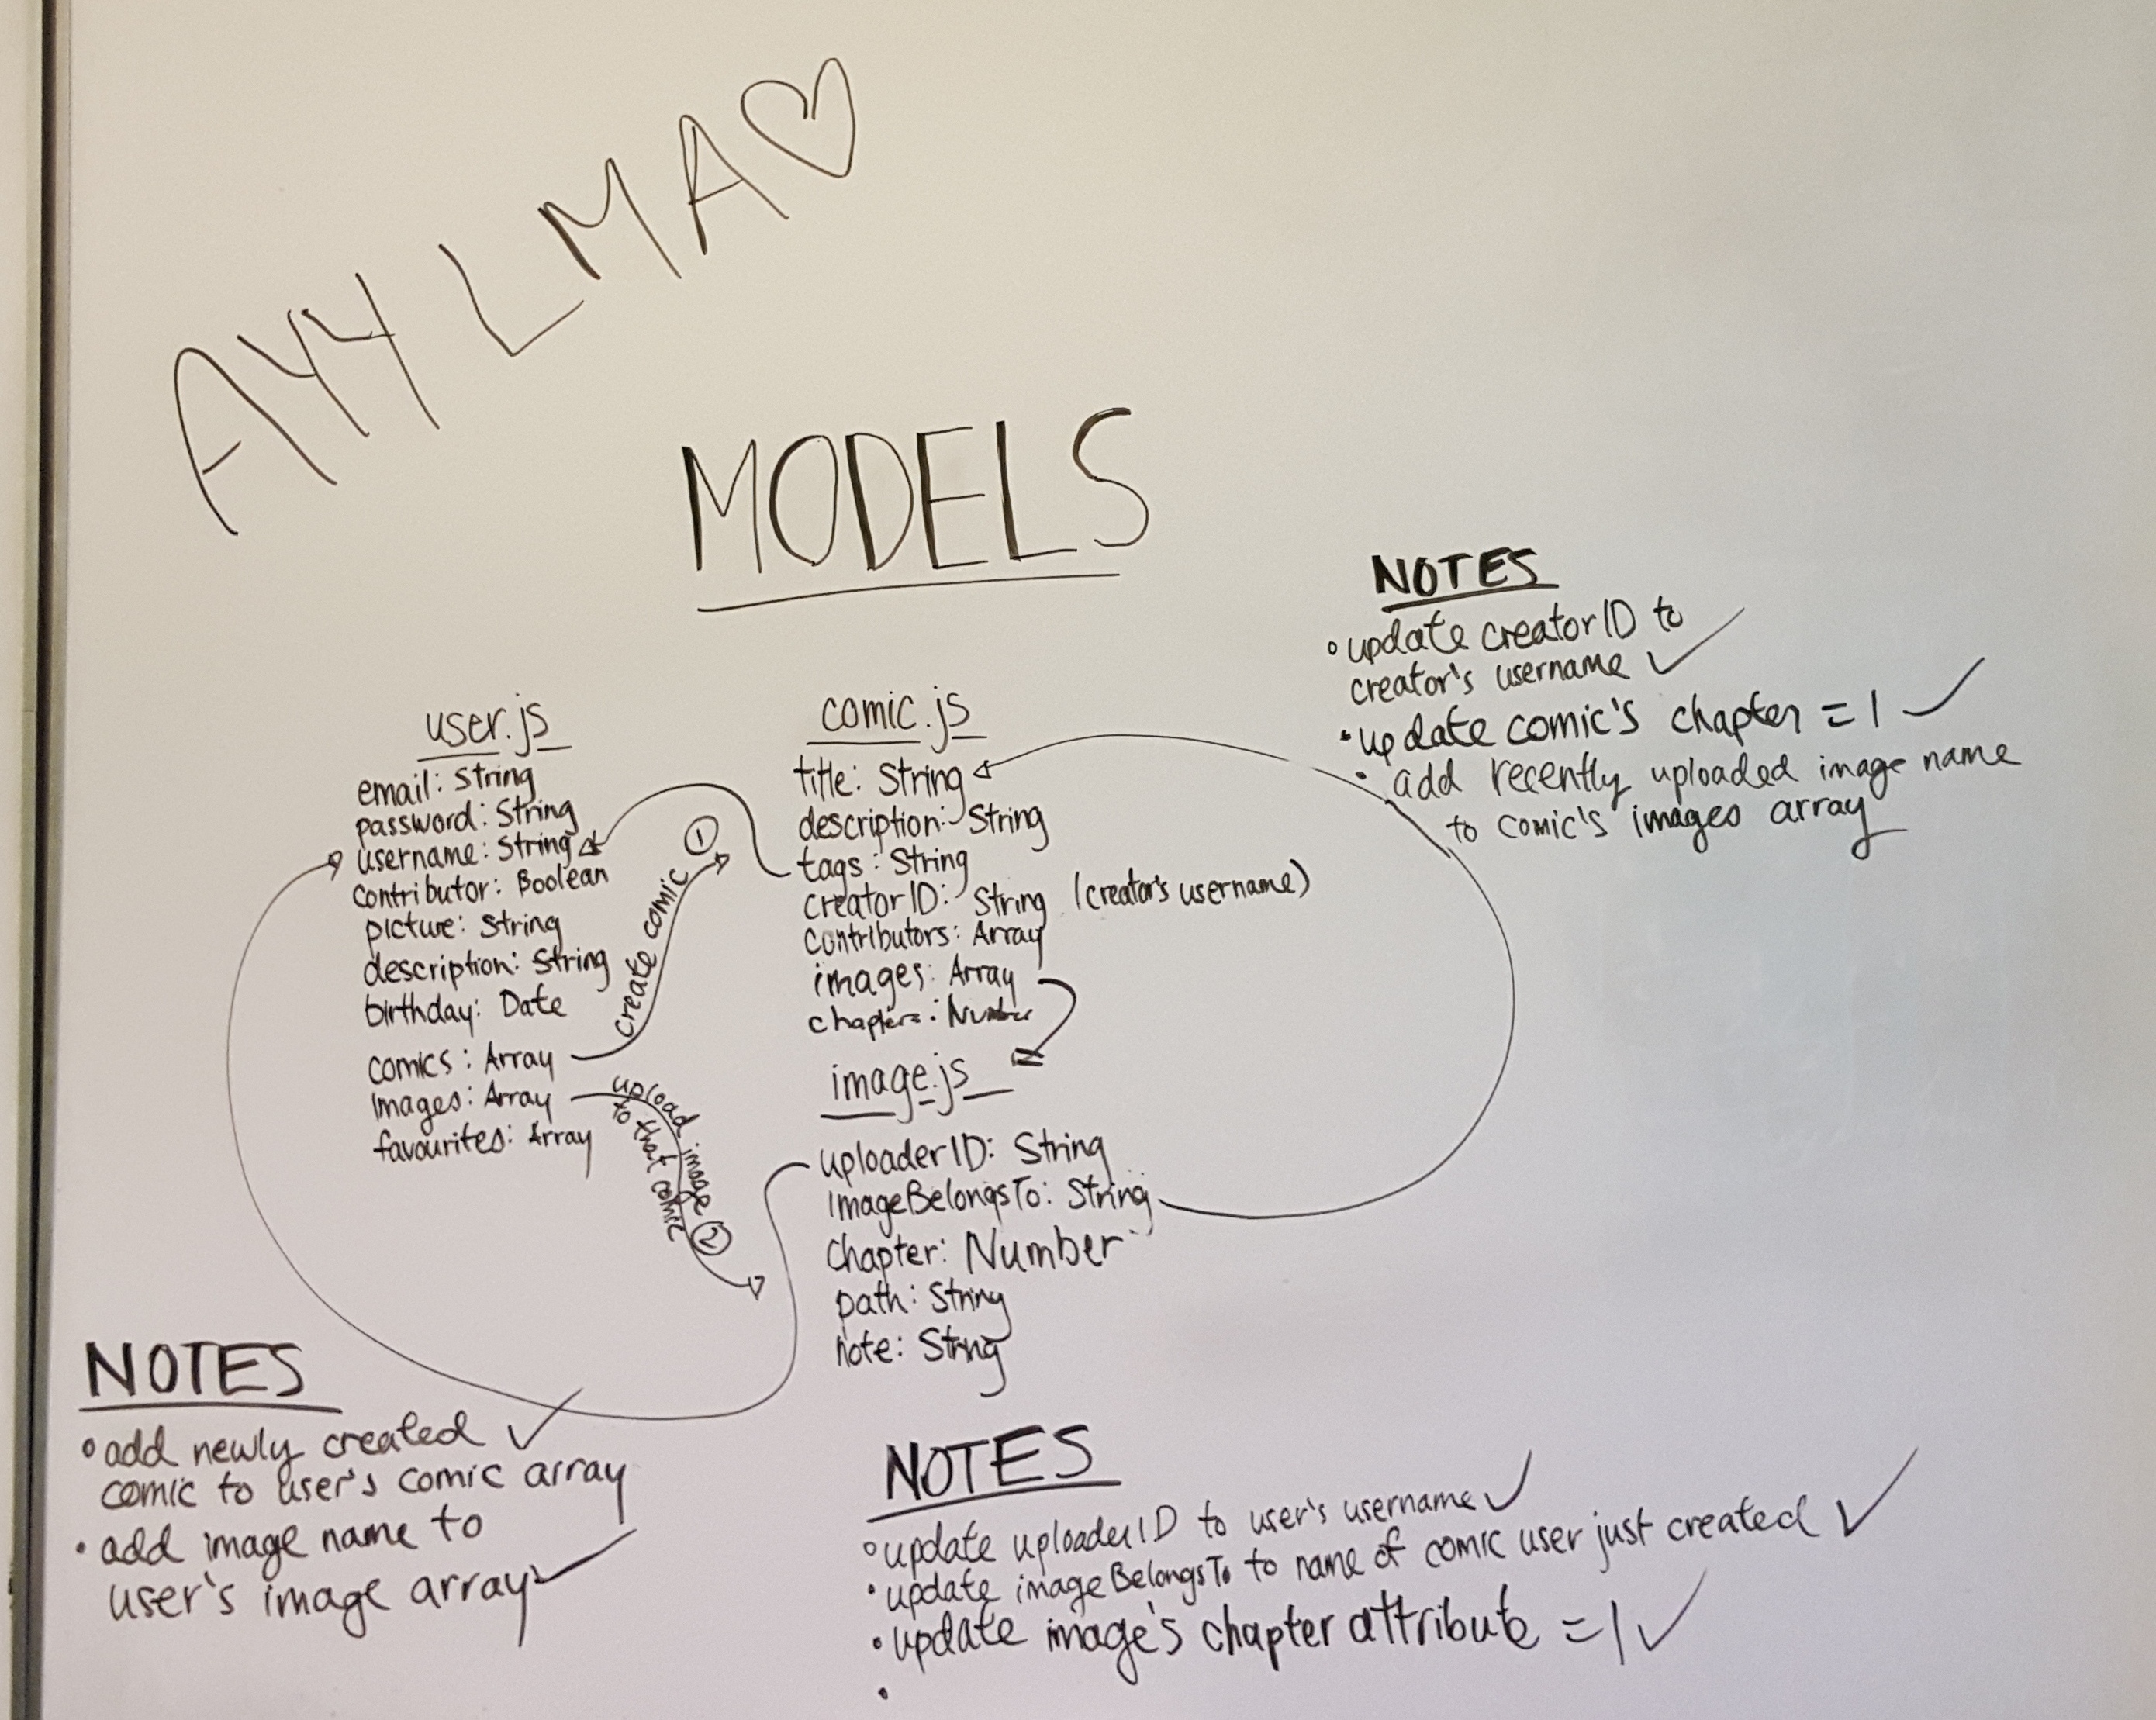 AYY LMA♡
MODELS
user.js
email: String
password: String
username: String
contributor: Boolean
picture: String
description: String
birthday: Date
comics: Array
images: Array
favourites: Array
create comic ①
upload image ②
to that comic
comic.js
title: String
description: String
tags: String
creatorID: String (creator's username)
contributors: Array
images: Array
chapters: Number
image.js
uploaderID: String
imageBelongsTo: String
Chapter: Number
path: String
note: String
NOTES
• update creatorID to
creator's username ✓
• update comic's chapter = 1 ✓
• add recently uploaded image name
to comic's images array
NOTES
• add newly created ✓
comic to user's comic array
• add image name to
user's image array ✓
NOTES
• update uploaderID to user's username ✓
• update imageBelongsTo to name of comic user just created ✓
• update image's chapter attribute = 1 ✓
•